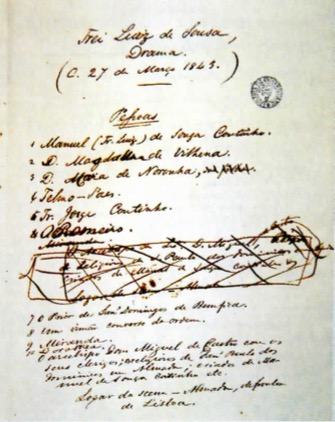 Frei Luiz de Sousa,
Drama.
(C. 27 de Março 1843.)
Pessoas
1 Manuel (Fr. Luiz) de Souza Coutinho.
2 D. Magdalena de Vilhena
3 D. Maria de Noronha,
4 Telmo-Paes.
5 Fr. Jorge Coutinho.
6 O Romeiro.
Miranda
7 O Prior de Sam' Domingos de Bemfica.
8 Um irmão converso da ordem.
9 Miranda.
10 Dorothea.
Arcebispo Dom Miguel de Castro com os
seus clerigos; religiosos de San' Paulo dos
Dominicos em Almada; criados de Ma-
nuel de Souza Coutinho etc.
Logar da scena — Almada, defronte
de Lisboa.